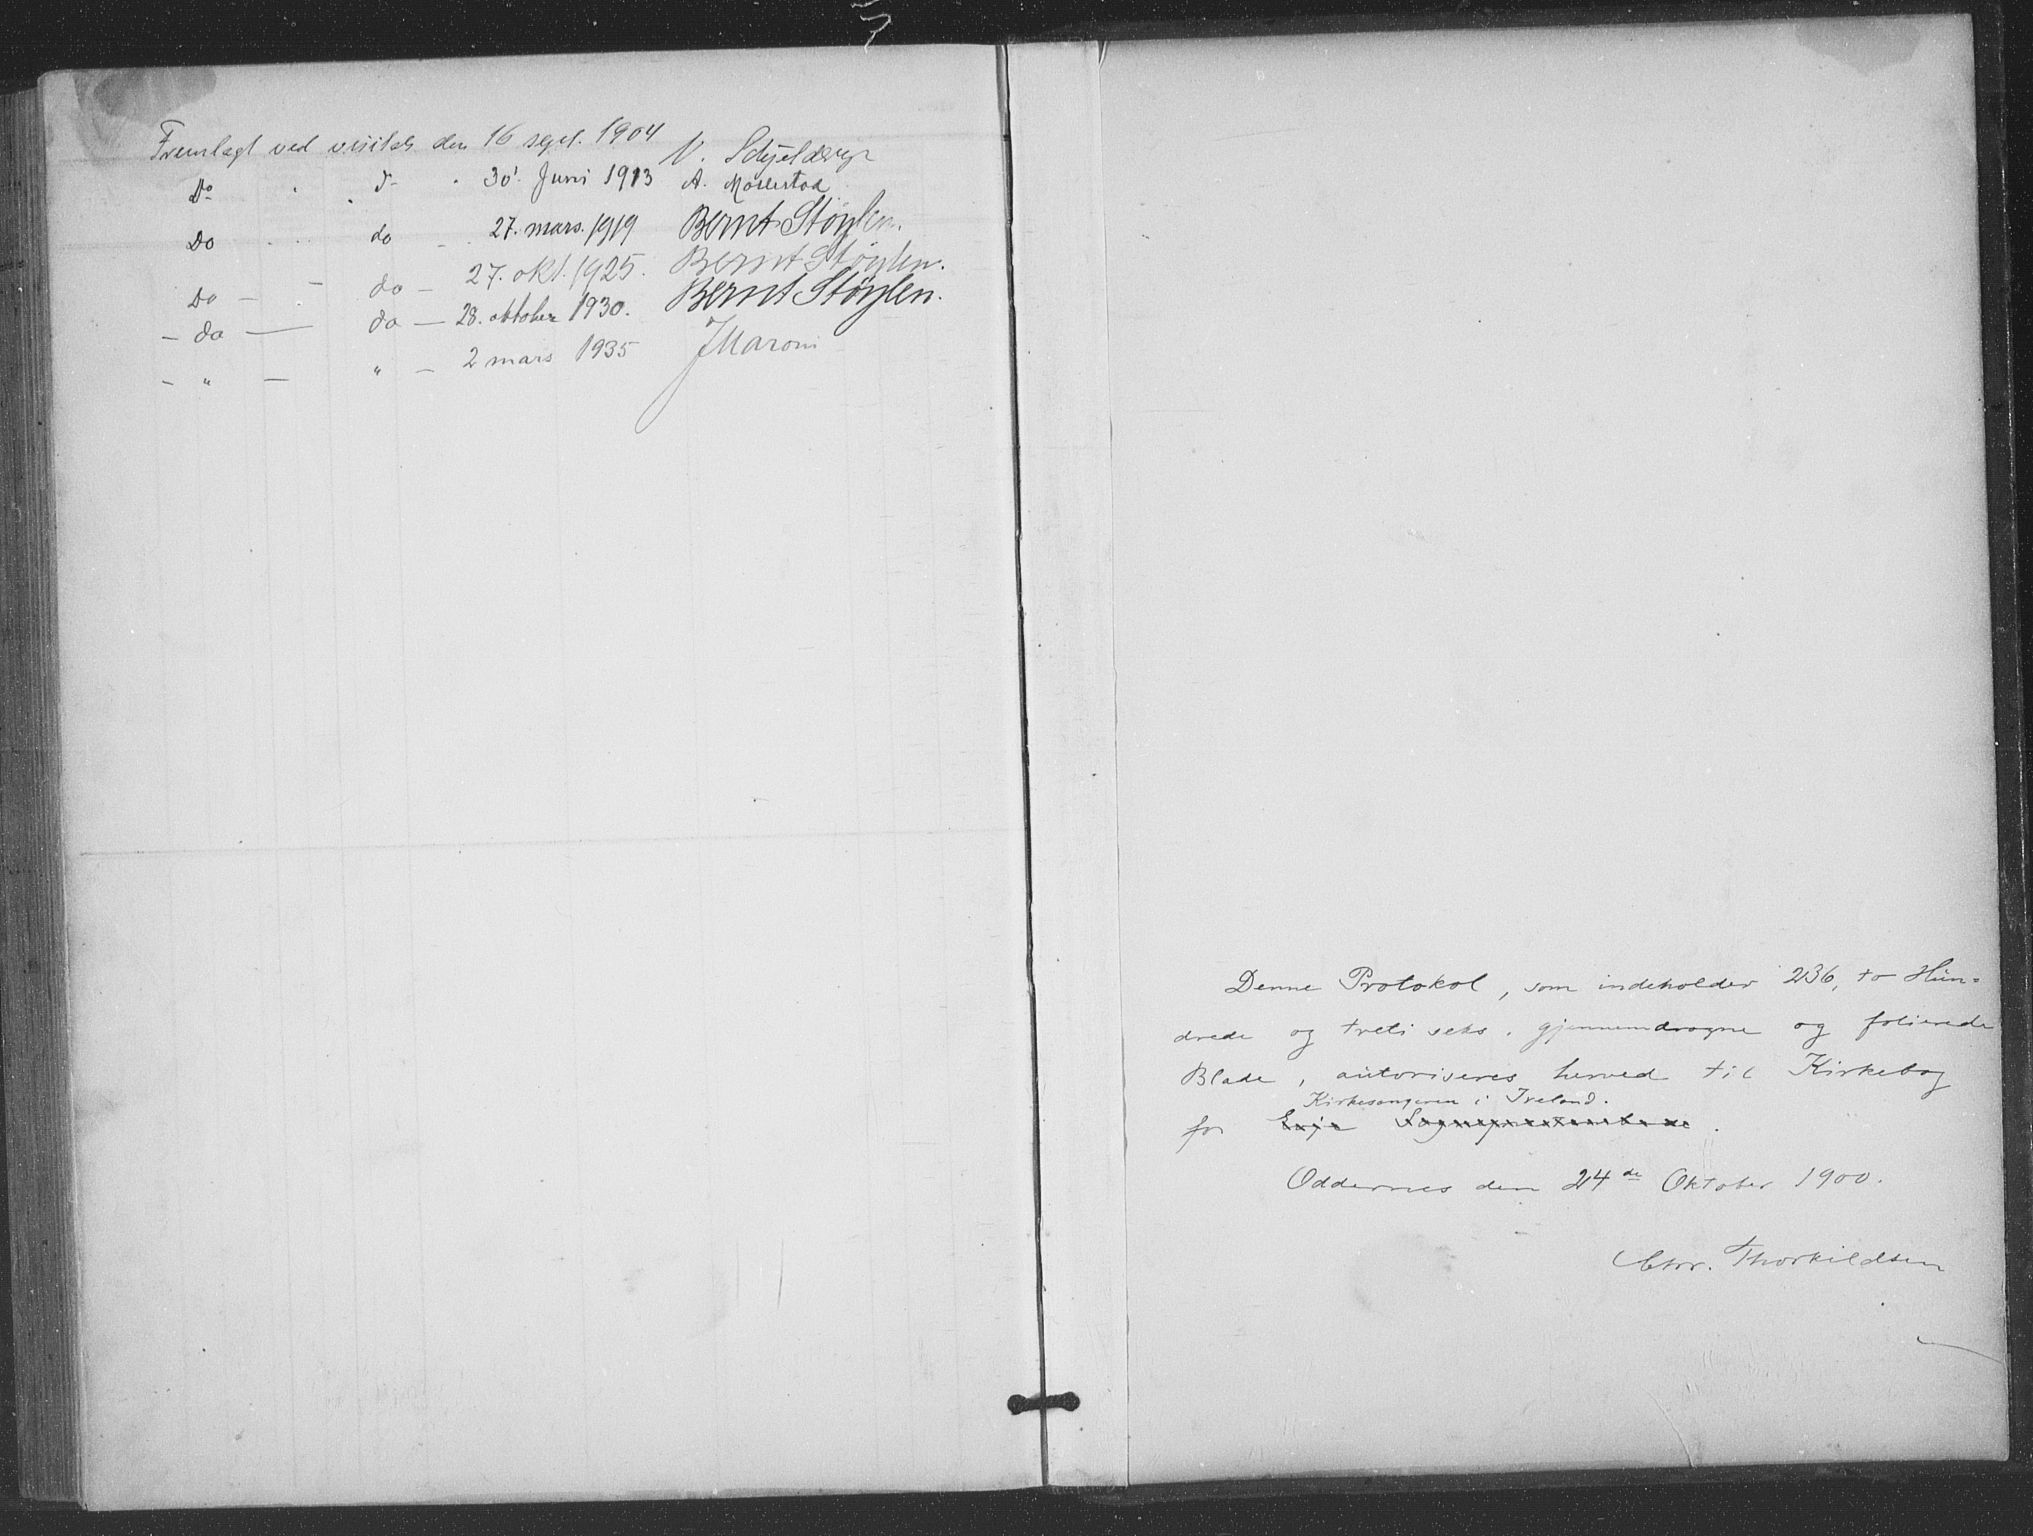 Fremlagt ved visitas den 16 sept. 1904 V. Schjelderup
Do " d- " 30' Juni 1913 A. Mosestad
Do do - 27. mars. 1919 Bernt Støylen.
Do - - do - 27. okt. 1925. Bernt Støylen.
- do - do - 28. oktober 1930. Bernt Støylen.
- " - " - 2 mars 1935 J Maroni
Denne Protokol, som indeholder 236, to Hun=
drede og treti seks, gjennemdragne og folierede
Blade, autoriseres herved til Kirkebog
Kirkesangeren i Iveland.
for Evje Sogneprestembede.
Oddernes den 24de Oktober 1900.
Chr. Thorkildsen